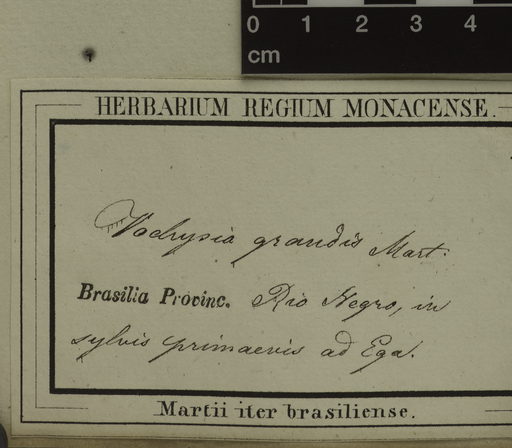 0 1 2 3 4
cm
HERBARIUM REGIUM MONACENSE.
Vochysia grandis Mart.
Brasilia Provinc. Rio Negro, in
sylvis primaevis ad Ega.
Martii iter brasiliense.